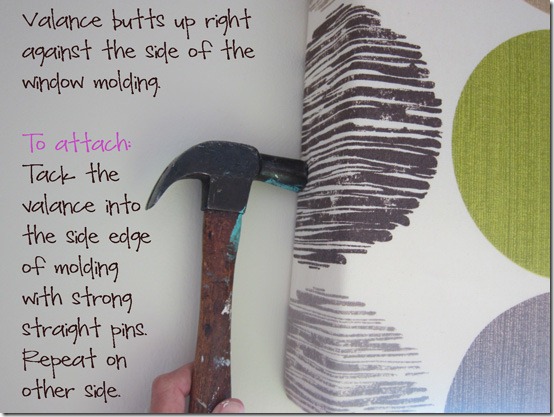 Valance butts up right
against the side of the
window molding.
To attach:
Tack the
valance into
the side edge
of molding
with strong
straight pins.
Repeat on
other side.